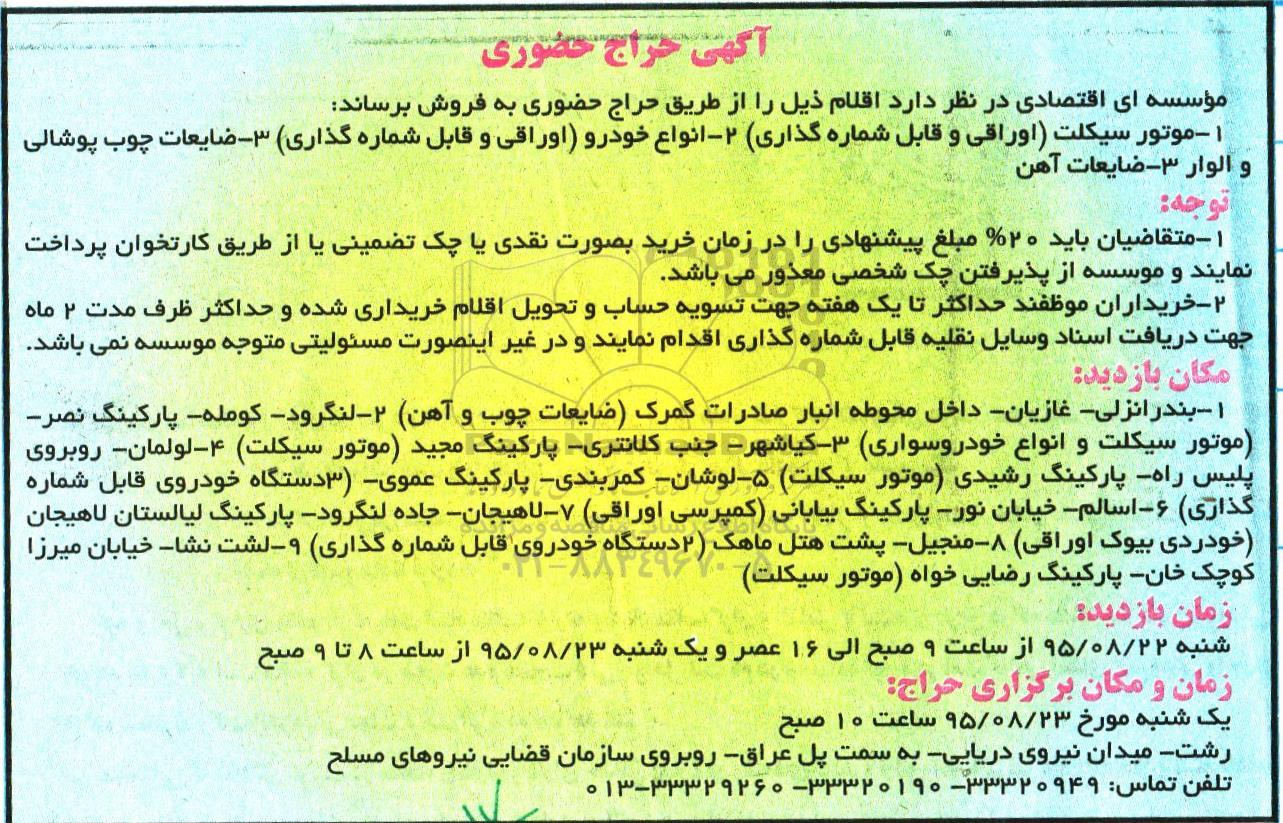 آگهی حراج حضوری
مؤسسه ای اقتصادی در نظر دارد اقلام ذیل را از طریق حراج حضوری به فروش برساند:
۱-موتور سیکلت (اوراقی و قابل شماره گذاری) ۲-انواع خودرو (اوراقی و قابل شماره گذاری) ۳-ضایعات چوب پوشالی
و الوار ۳-ضایعات آهن
توجه:
۱-متقاضیان باید ۲۰% مبلغ پیشنهادی را در زمان خرید بصورت نقدی یا چک تضمینی یا از طریق کارتخوان پرداخت
نمایند و موسسه از پذیرفتن چک شخصی معذور می باشد.
۲-خریداران موظفند حداکثر تا یک هفته جهت تسویه حساب و تحویل اقلام خریداری شده و حداکثر ظرف مدت ۲ ماه
جهت دریافت اسناد وسایل نقلیه قابل شماره گذاری اقدام نمایند و در غیر اینصورت مسئولیتی متوجه موسسه نمی باشد.
مکان بازدید:
۱-بندرانزلی- غازیان- داخل محوطه انبار صادرات گمرک (ضایعات چوب و آهن) ۲-لنگرود- کومله- پارکینگ نصر-
(موتور سیکلت و انواع خودروسواری) ۳-کیاشهر- جنب کلانتری- پارکینگ مجید (موتور سیکلت) ۴-لولمان- روبروی
پلیس راه- پارکینگ رشیدی (موتور سیکلت) ۵-لوشان- کمربندی- پارکینگ عموی- (۳دستگاه خودروی قابل شماره
گذاری) ۶-اسالم- خیابان نور- پارکینگ بیابانی (کمپرسی اوراقی) ۷-لاهیجان- جاده لنگرود- پارکینگ لیالستان لاهیجان
(خودردی بیوک اوراقی) ۸-منجیل- پشت هتل ماهک (۲دستگاه خودروی قابل شماره گذاری) ۹-لشت نشا- خیابان میرزا
کوچک خان- پارکینگ رضایی خواه (موتور سیکلت)
۰۲۱-۸۸۳۴۹۶۷۰-۵
زمان بازدید:
شنبه ۹۵/۰۸/۲۲ از ساعت ۹ صبح الی ۱۶ عصر و یک شنبه ۹۵/۰۸/۲۳ از ساعت ۸ تا ۹ صبح
زمان و مکان برگزاری حراج:
یک شنبه مورخ ۹۵/۰۸/۲۳ ساعت ۱۰ صبح
رشت- میدان نیروی دریایی- به سمت پل عراق- روبروی سازمان قضایی نیروهای مسلح
تلفن تماس: ۳۳۳۲۰۹۴۹- ۳۳۳۲۰۱۹۰- ۳۳۳۲۹۲۶۰-۰۱۳